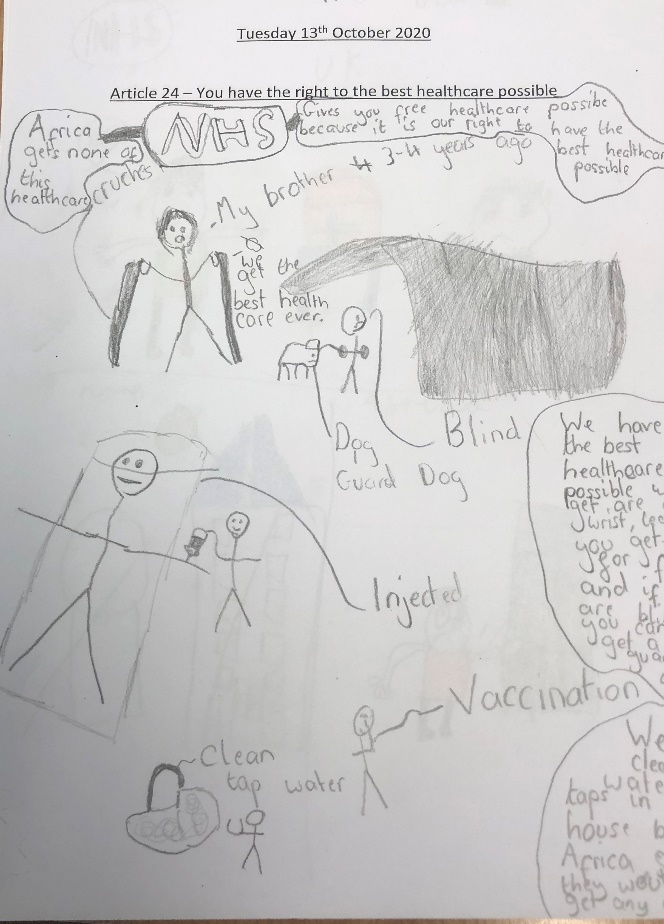 Tuesday 13th October 2020
Article 24 – You have the right to the best healthcare possible
Africa
gets none of
this
healthcare
NHS
Gives you free healthcare possibe
because it is our right to have the
best healthcar
possible
cruches
My brother 3-4 years ago
we
get the
best health
care ever.
Blind
Dog
Guard Dog
We have
the best
healthcare
possible w
get, are
wrist, leg
you get
for f
and if
are bl
you can
get a
gua
Injected
Vaccination
Clean
tap water
We
clea
wate
taps in
house b
Africa s
they woul
get any